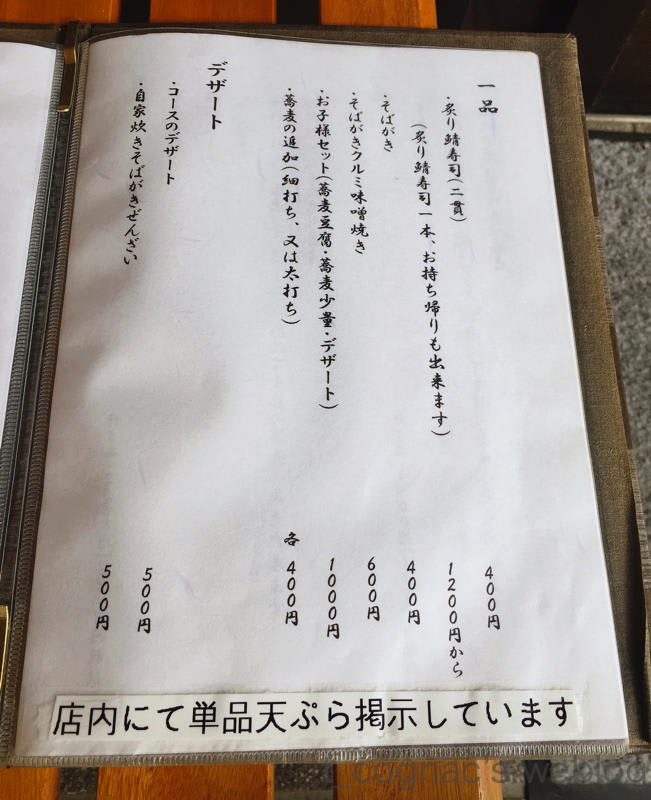 一品
・炙り鯖寿司(二貫) 400円
(炙り鯖寿司一本、お持ち帰りも出来ます) 1200円から
・そばがき 400円
・そばがきクルミ味噌焼き 600円
・お子様セット(蕎麦豆腐・蕎麦少量・デザート) 1000円
・蕎麦の追加(細打ち、又は太打ち) 各 400円
デザート
・コースのデザート 500円
・自家炊きそばがきぜんざい 500円
店内にて単品天ぷら掲示しています
_cognac's weblog